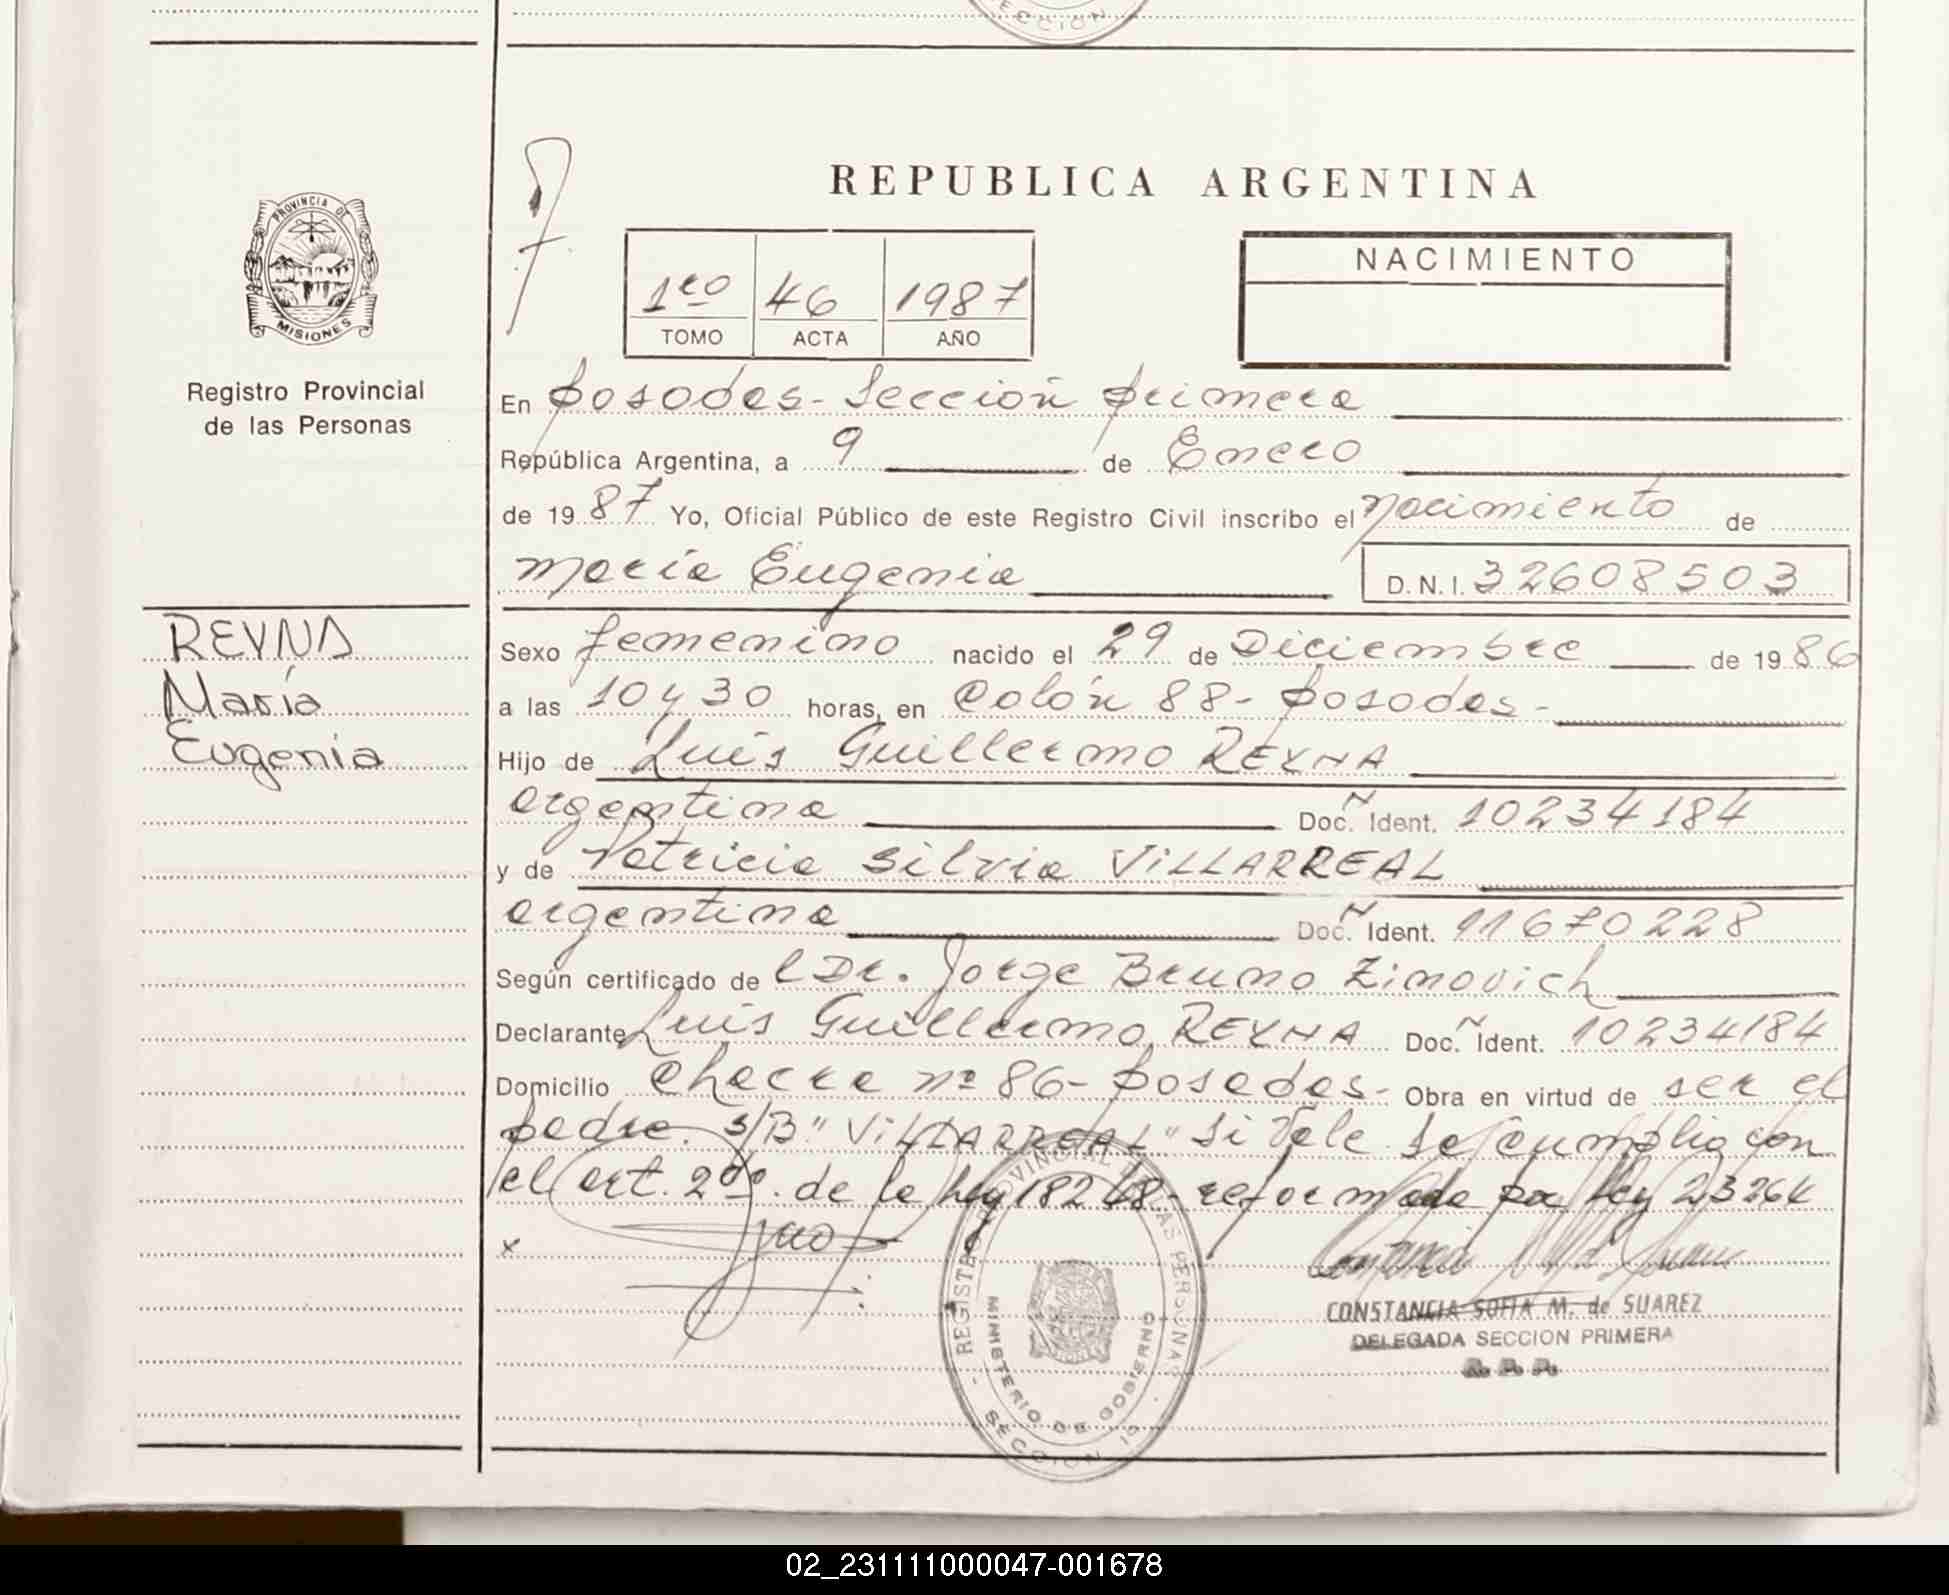 SECCION
REPUBLICA ARGENTINA
PROVINCIA DE
MISIONES
Registro Provincial
de las Personas
1ro 46 1987
TOMO ACTA AÑO
NACIMIENTO
En Posadas - Sección primera
República Argentina, a 9 de Enero
de 1987 Yo, Oficial Público de este Registro Civil inscribo el Nacimiento de
María Eugenia D.N.I. 32608503
REYNA
María
Eugenia
Sexo femenino nacido el 29 de Diciembre de 1986
a las 10 y 30 horas, en Colón 88 - Posadas -
Hijo de Luis Guillermo REYNA
argentina Doc. Ident. 10234184
y de Patricia Silvia VILLARREAL
argentina Doc. Ident. 11670228
Según certificado de l Dr. Jorge Bruno Zinovich
Declarante Luis Guillermo REYNA Doc. Ident. 10234184
Domicilio Chacra nº 86 - Posadas - Obra en virtud de ser el
padre. S/B "VILLARREAL" Si Vale Se cumplio con
el art. 2do. de la ley 18248 - reformada por ley 23264
x
CONSTANCIA SOFIA M. de SUAREZ
DELEGADA SECCION PRIMERA
REGISTRO PROVINCIAL DE LAS PERSONAS
MINISTERIO DE GOBIERNO
SECCION 1ª
02_231111000047-001678